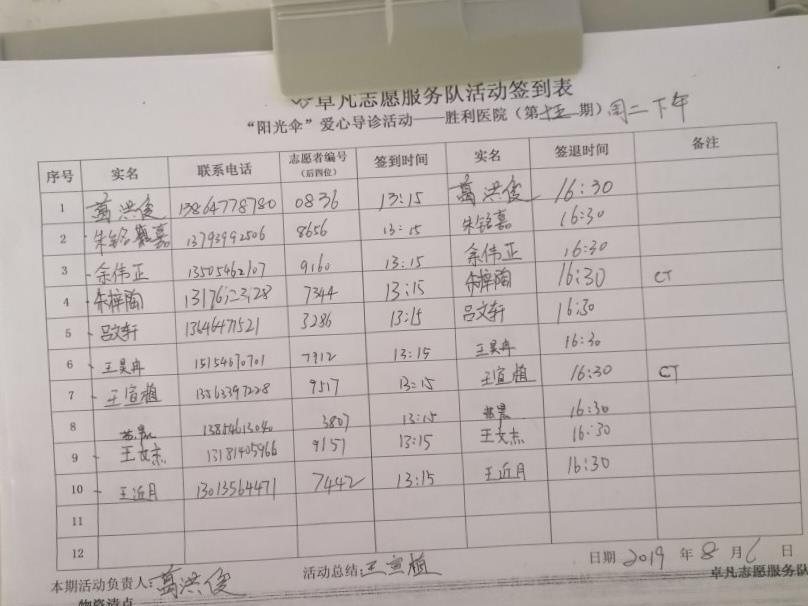 卓凡志愿服务队活动签到表
“阳光伞”爱心导诊活动——胜利医院（第十五期）周二下午
序号 实名 联系电话 志愿者编号（后四位） 签到时间 实名 签退时间 备注
1 葛洪俊 13864778780 0836 13:15 葛洪俊 16:30
2 朱铭嘉 13793992506 8656 13:15 朱铭嘉 16:30
3 余伟正 13505462107 9160 13:15 余伟正 16:30
4 朱梓陶 7344 13:15 朱梓陶 16:30 CT
5 吕文轩 13646471521 3286 13:15 吕文轩 16:30
6 王昊冉 15154670701 7912 13:15 王昊冉 16:30
7 王宣植 13563397228 9517 13:15 王宣植 16:30 CT
8 13854613040 3807 13:15 16:30
9 王文杰 13181405966 9157 13:15 王文杰 16:30
10 王近月 13013564471 7442 13:15 王近月 16:30
11
12
本期活动负责人：葛洪俊 活动总结：王宣植 日期 2019 年 8 月 6 日
物资清点 卓凡志愿服务队